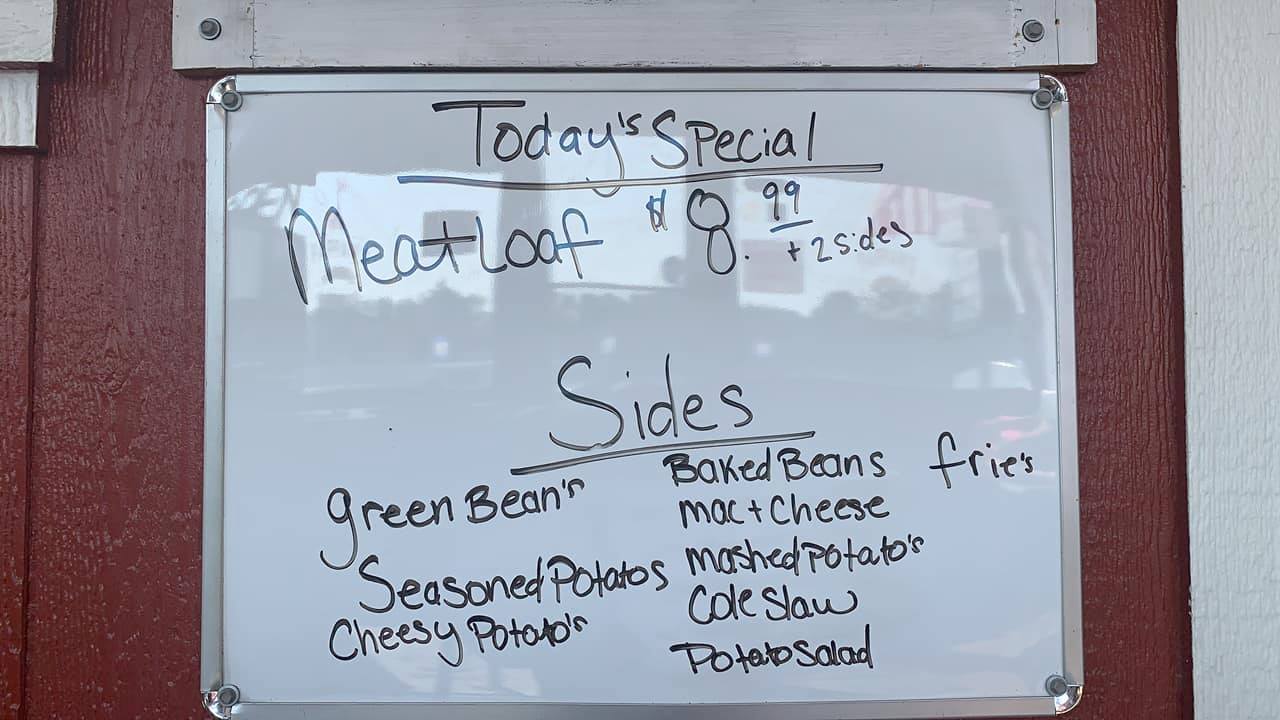 Today's Special
Meatloaf $8.99
+ 2 sides
Sides
green Bean's
Seasoned Potatos
Cheesy Potato's
Baked Beans
mac + Cheese
mashed potato's
Cole Slaw
Potato Salad
frie's